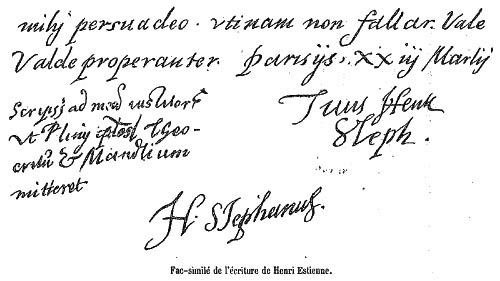 mihi persuadeo. vtinam non fallar. Vale
Valde properanter. Parisijs, XX iij Martij
Scripsi ad
vt Plinij Theo-
critū & Manilium
mitteret
Tuus Henr.
Steph.
H. Stephanus.
Fac-similé de l'écriture de Henri Estienne.